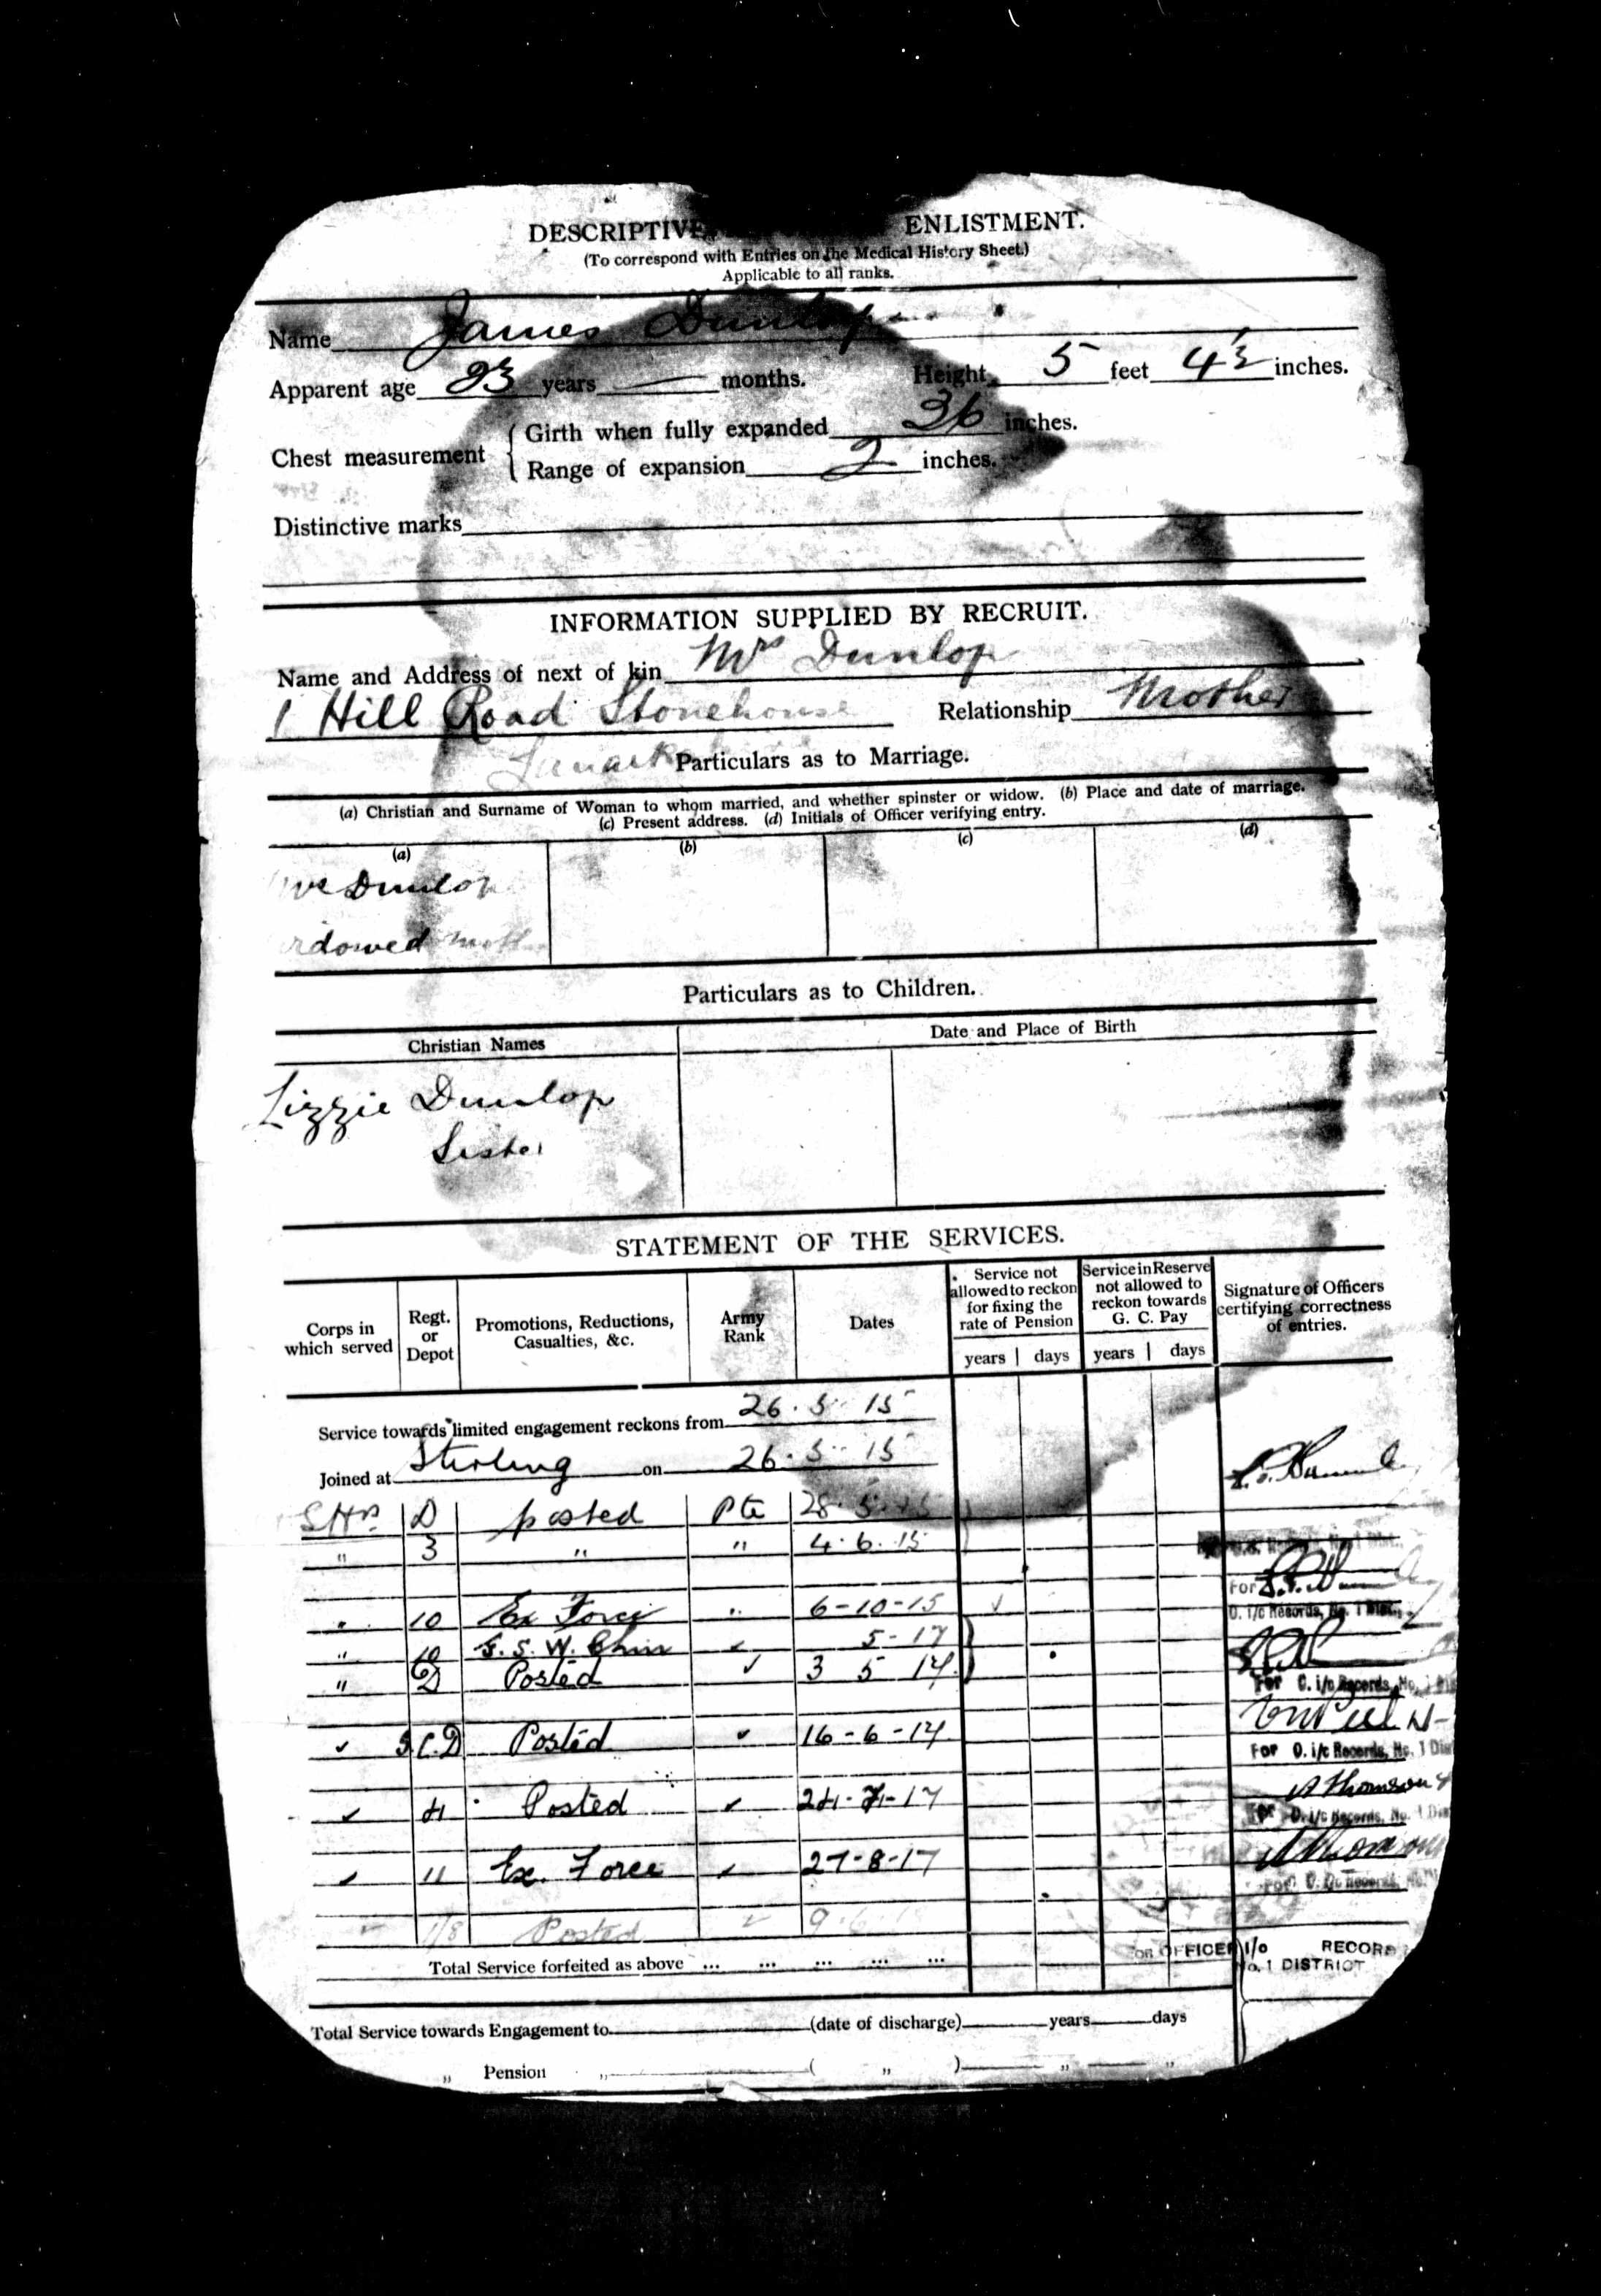 DESCRIPTIVE ENLISTMENT.
(To correspond with Entries on the Medical History Sheet.)
Applicable to all ranks.
Name James Dunlop
Apparent age 23 years — months. Height 5 feet 4½ inches.
Chest measurement { Girth when fully expanded 36 inches.
Range of expansion 2 inches.
Distinctive marks
INFORMATION SUPPLIED BY RECRUIT.
Name and Address of next of kin Mrs Dunlop
1 Hill Road Stonehouse Relationship Mother
Particulars as to Marriage.
(a) Christian and Surname of Woman to whom married, and whether spinster or widow. (b) Place and date of marriage.
(c) Present address. (d) Initials of Officer verifying entry.
(a) (b) (c) (d)
Dunlop
dowed
Particulars as to Children.
Christian Names Date and Place of Birth
Lizzie Dunlop
Sister
STATEMENT OF THE SERVICES.
Corps in which served Regt. or Depot Promotions, Reductions, Casualties, &c. Army Rank Dates Service not allowed to reckon for fixing the rate of Pension Service in Reserve not allowed to reckon towards G. C. Pay Signature of Officers certifying correctness of entries.
years days years days
Service towards limited engagement reckons from 26·5·15
Joined at Stirling on 26·5·15
D posted Pte 28·5·15
" 3 " " 4·6·15
" 10 Ex Force " 6-10-15
For
O. i/c Records, No. 1 Dist.
" 10 G.S.W. 5-17
" D Posted ✓ 3 5 17
For O. i/c Records, No. 1
✓ Posted ✓ 16-6-17
For O. i/c Records, No. 1 Dis
✓ 4 Posted ✓ 24-7-17 Thomson
For O. i/c Records, No. 1 Dis
✓ 11 Ex. Force ✓ 27-8-17
For O. i/c Records,
✓ 1/8 Posted ✓ 9·6·1
Total Service forfeited as above ... ... ... ... ...
FOR OFFICER I/c RECORD
No. 1 DISTRICT
Total Service towards Engagement to (date of discharge) years days
„ Pension „ ( „ ) „ „